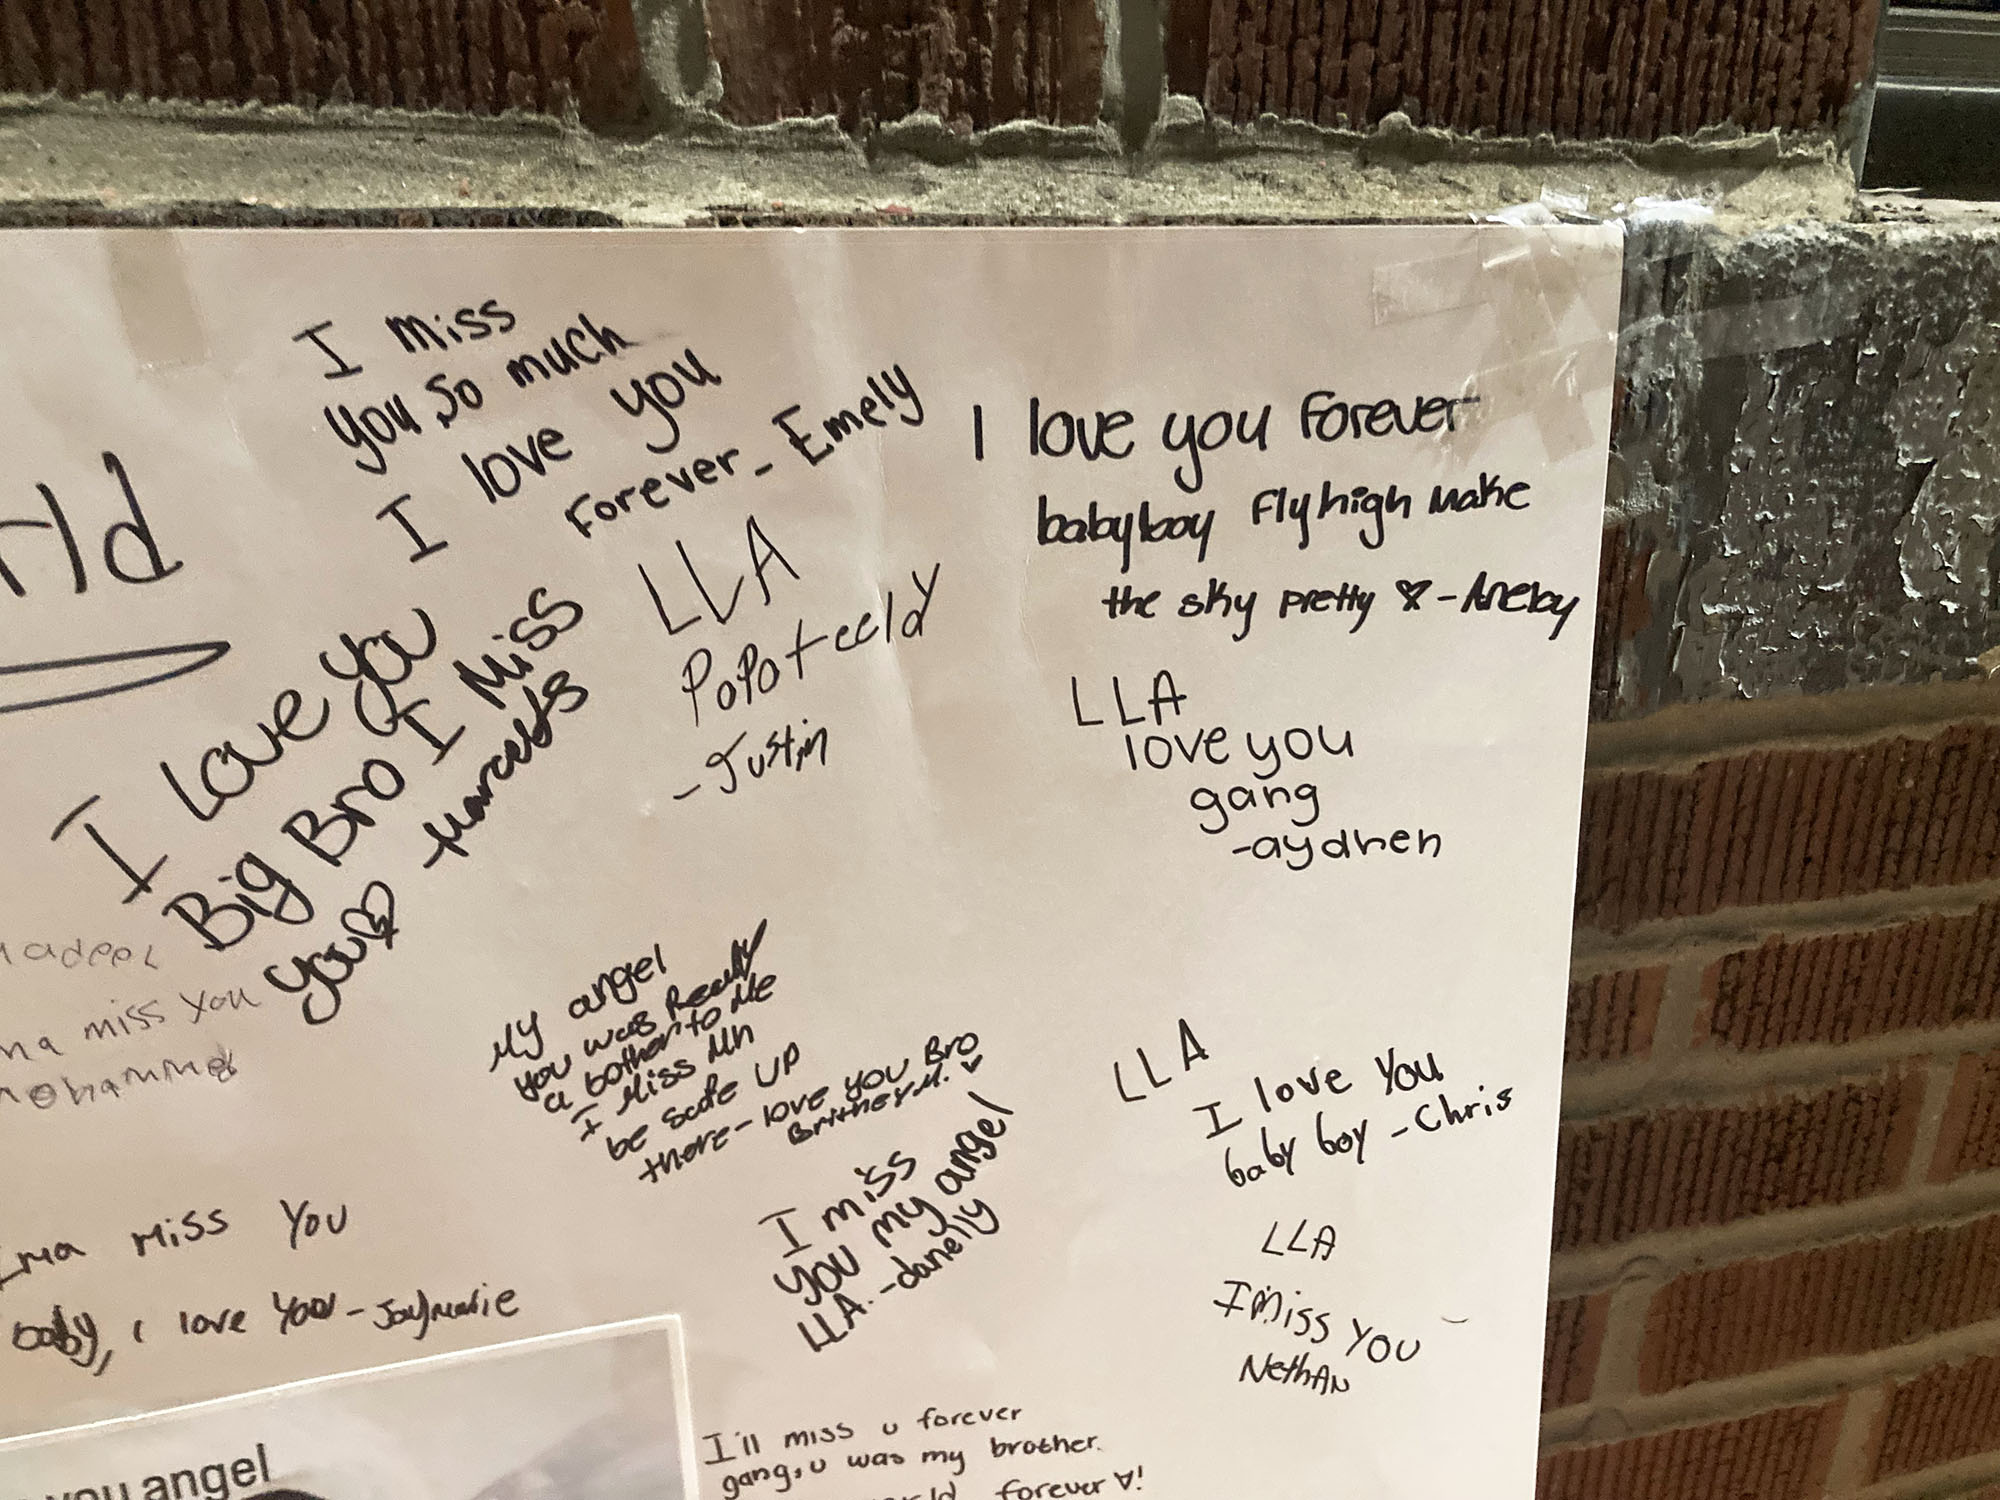 I miss
you so much
I love you
Forever - Emely
I love you
Big Bro I Miss
you
LLA
Popoteeldy
-Justin
I love you Forever
babyboy Fly high make
the sky pretty - Aneley
LLA
love you
gang
-aydren
miss you
My angel
you was Really
a bother to Me
I Miss Uh
be safe UP
there - love you Bro
Brithey M.
I miss
you my angel
LLA. -danelly
LLA
I love you
baby boy - Chris
LLA
I miss you
NethAN
Ima miss You
baby, i love you - Jaymarie
you angel
I'll miss u forever
gang, u was my brother.
forever ∀!